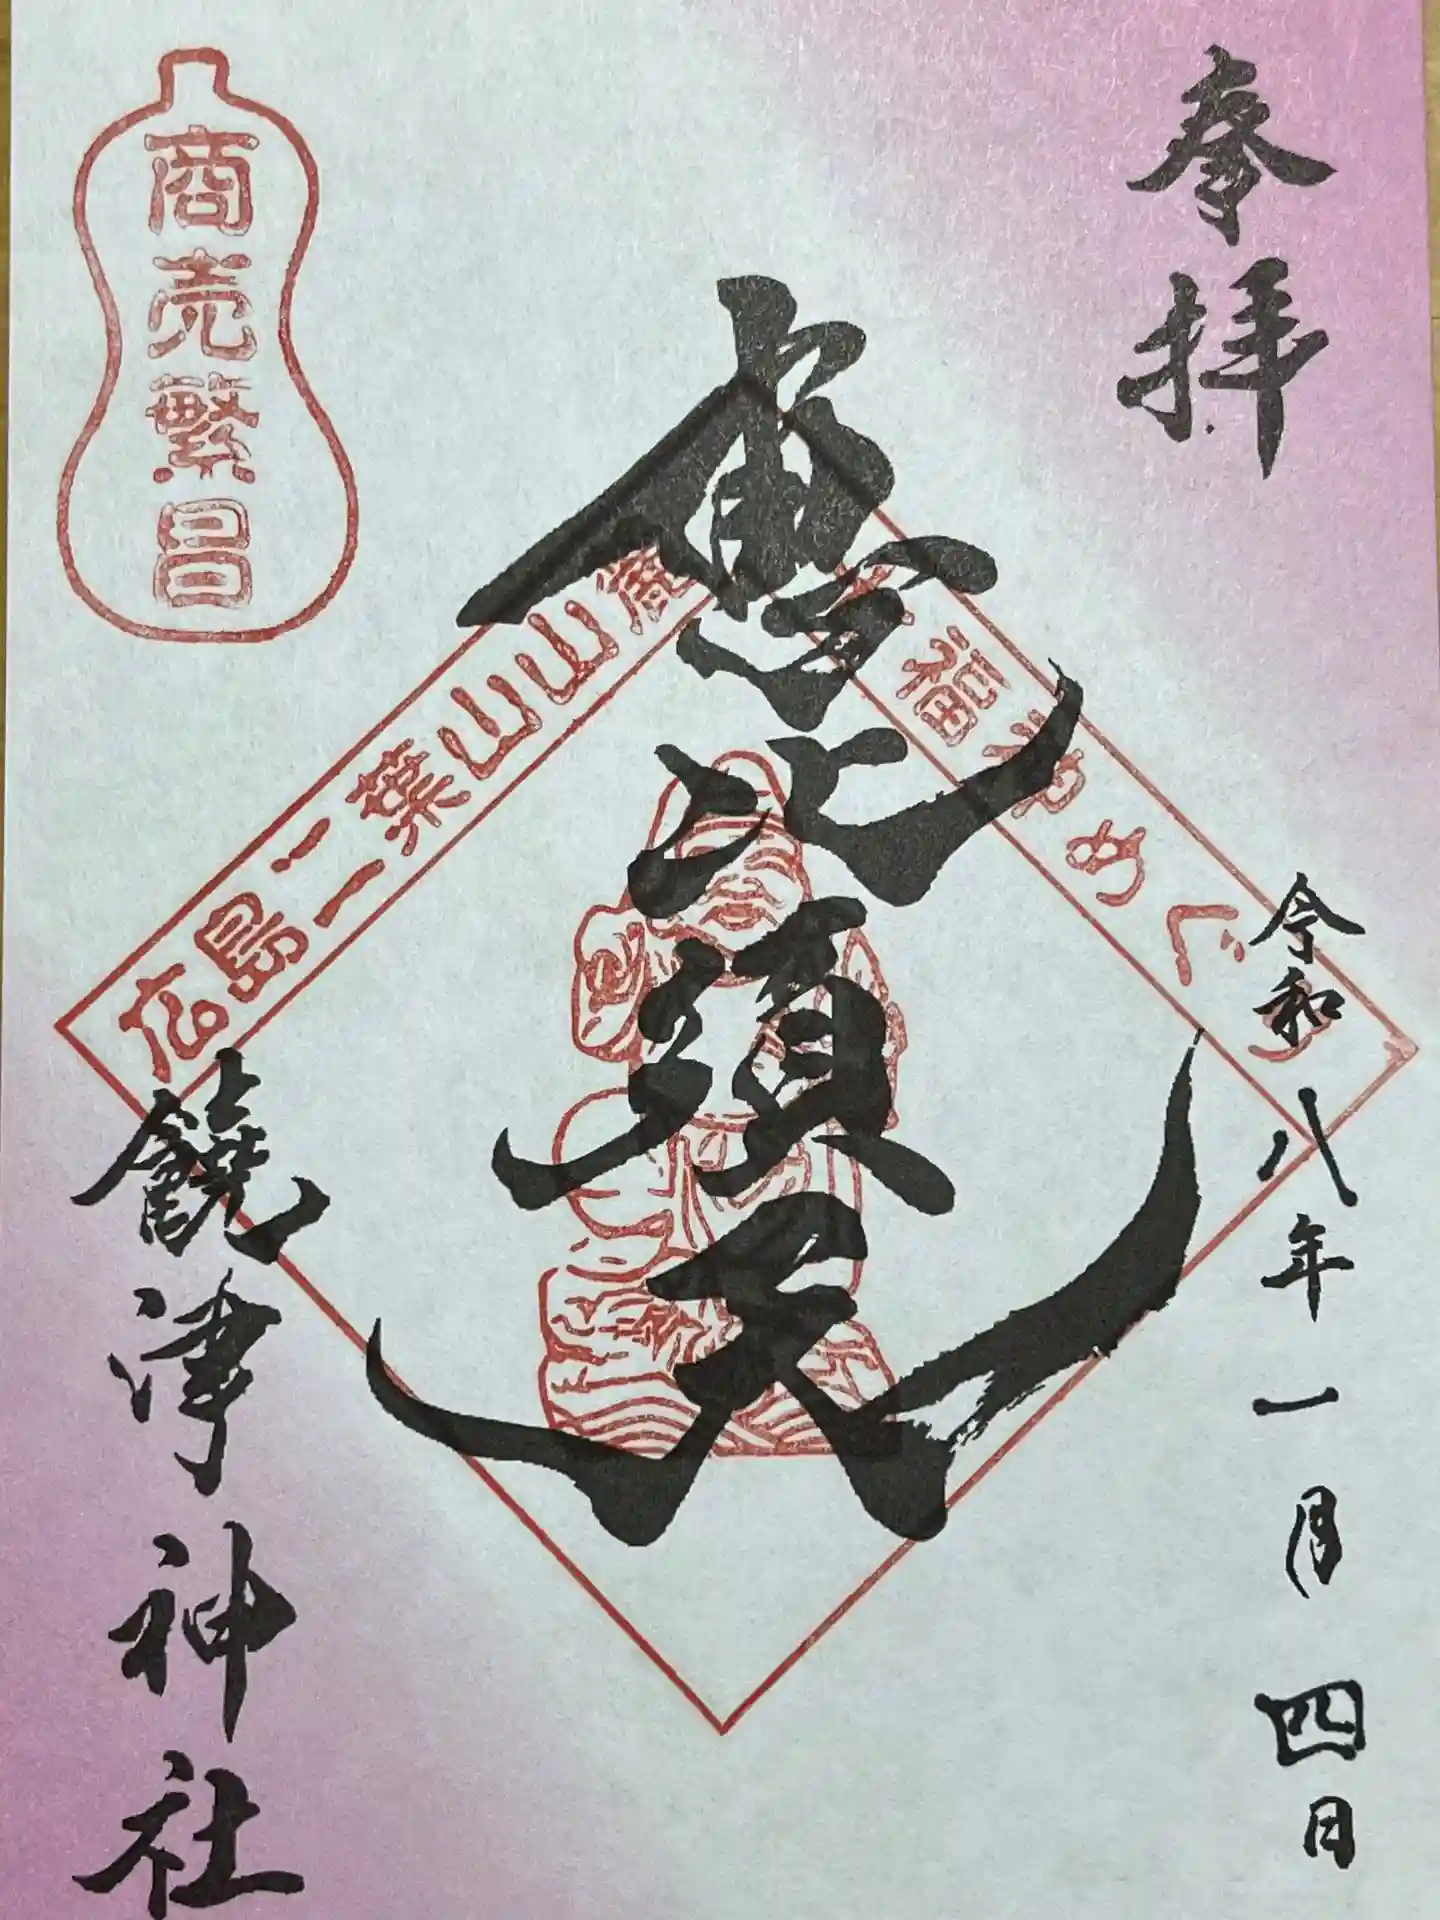 奉拝
令和八年一月四日
恵比須天
商売繁昌
広島二葉山山麓
福神めぐり
饒津神社